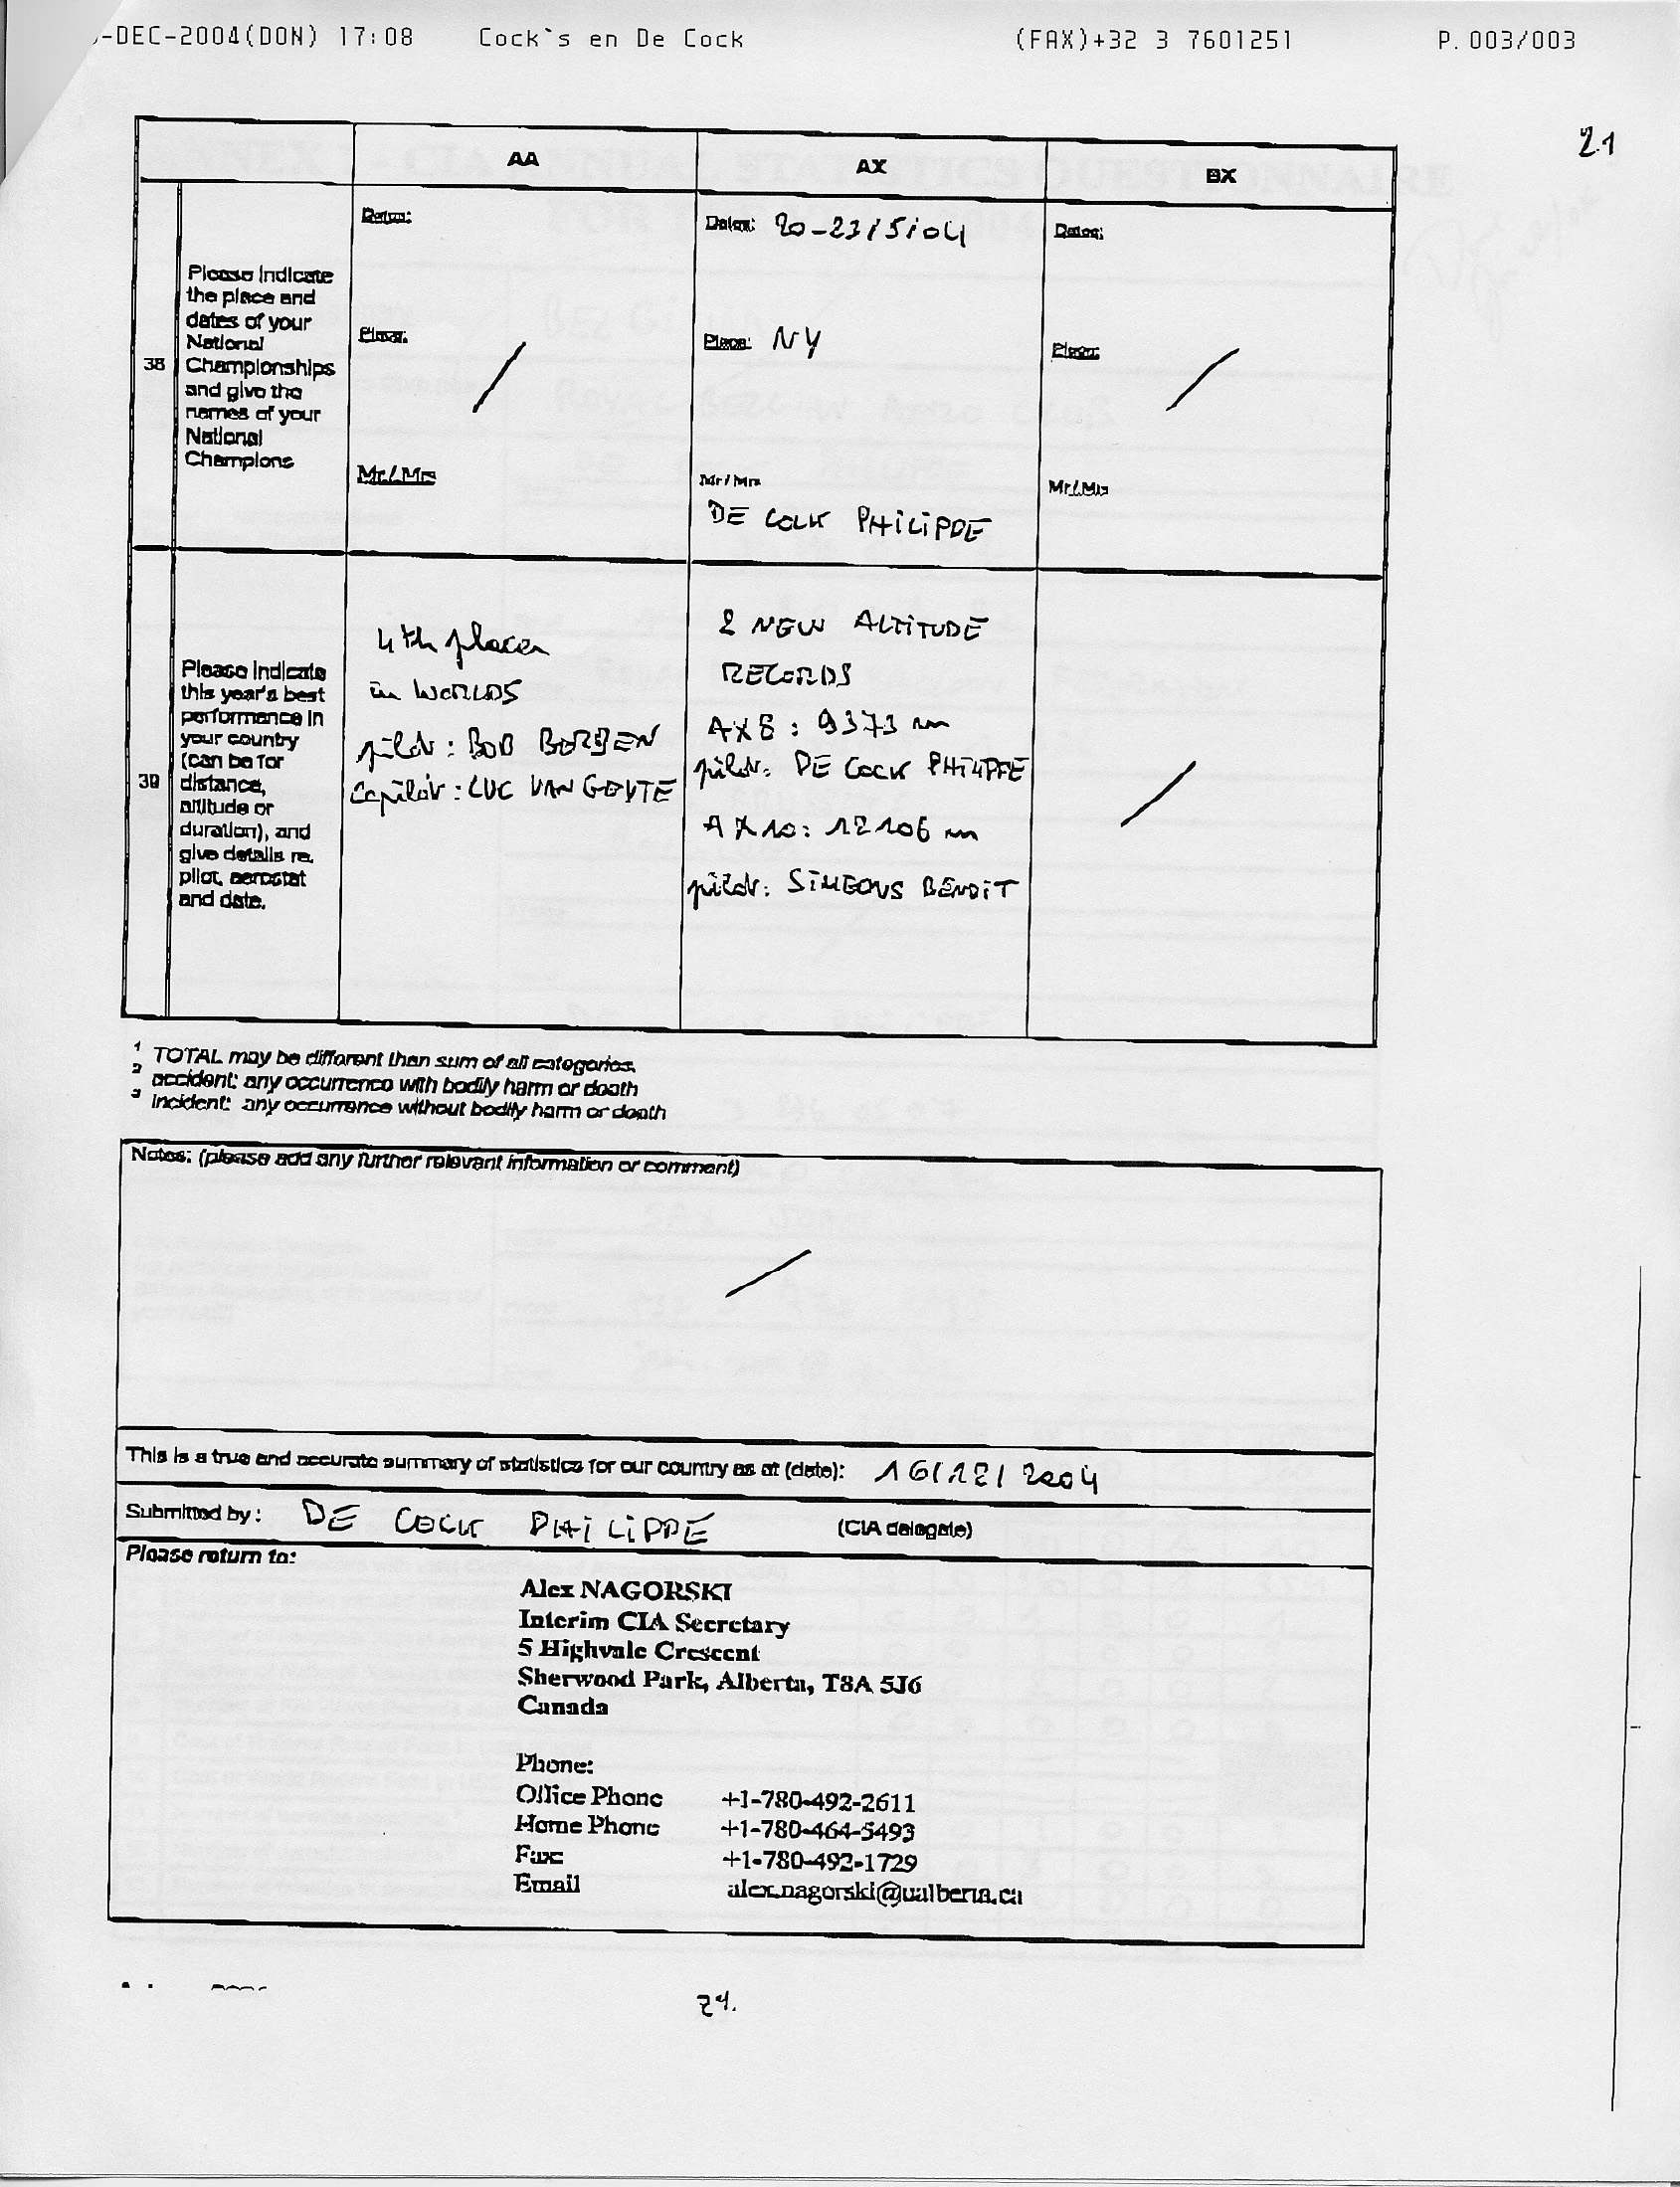 -DEC-2004(DON) 17:08 Cock`s en De Cock (FAX)+32 3 7601251 P.003/003
21
AA AX BX
38
Please indicate
the place and
dates of your
National
Championships
and give the
names of your
National
Champions
Dates:
Place:
Mr./Mrs
Dates: 20-23/5/04
Place: NY
Mr/Mrs
DE COCK PHILIPPE
Dates:
Place:
Mr/Mrs
39
Please indicate
this year's best
performance in
your country
(can be for
distance,
altitude or
duration), and
give details re.
pilot, aerostat
and date.
4th place
in WORLDS
pilot: BOB BERBEN
Copilot: LUC VAN GEYTE
2 NEW ALTITUDE
RECORDS
: 9373 m
pilot: DE COCK PHILIPPE
AX10: 12106 m
pilot: SIMEONS BENOIT
1 TOTAL may be different than sum of all categories.
2 accident: any occurrence with bodily harm or death
3 incident: any occurrence without bodily harm or death
Notes: (please add any further relevant information or comment)
This is a true and accurate summary of statistics for our country as at (date): 16/12/2004
Submitted by: DE COCK PHILIPPE (CIA delegate)
Please return to:
Alex NAGORSKI
Interim CIA Secretary
5 Highvale Crescent
Sherwood Park, Alberta, T8A 5J6
Canada
Phone:
Office Phone +1-780-492-2611
Home Phone +1-780-464-5493
Fax: +1-780-492-1729
Email alex.nagorski@ualberta.ca